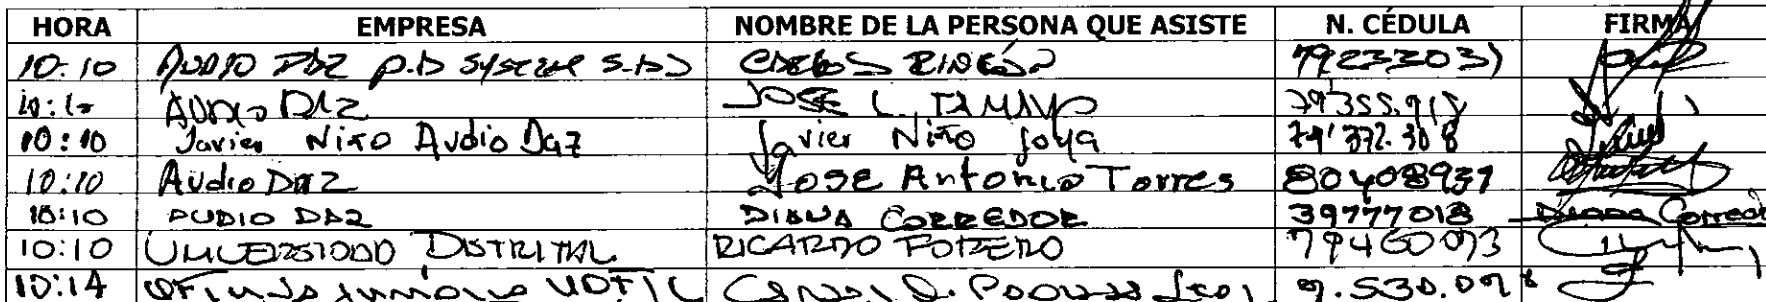 HORA EMPRESA NOMBRE DE LA PERSONA QUE ASISTE N. CÉDULA FIRMA
10:10 AUDIO DAZ P.D SYSTEM S.A.S CARLOS RINCÓN 79233031
10:10 AUDIO DAZ JOSE L. TAMAYO 79'355.918
10:10 Javier Niño Audio Daz Javier Niño Joya 79'372.308
10:10 Audio Daz Jose Antonio Torres 80408937
10:10 AUDIO DAZ DIANA CORREDOR 39777018 Diana Corredor
10:10 UNIVERSIDAD DISTRITAL RICARDO FORERO 79460093
10:14 OFICINA UDFJC 9.530.09